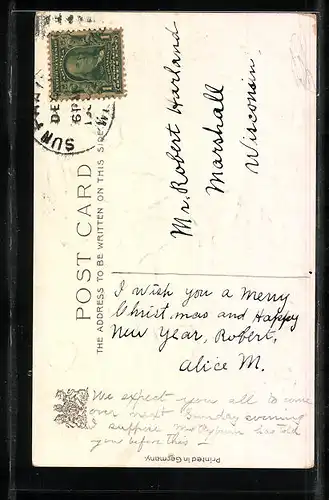 POST CARD
THE ADDRESS TO BE WRITTEN ON THIS SIDE
SUN
DE
6 P
Mr. Robert Harland
Marshall
Wisconsin.
I wish you a Merry
Christ.mas and Happy
New Year, Robert,
Alice M.
We expect your all to come
over next Sunday evening
I suppose Mr has told
you before this
Printed in Germany.